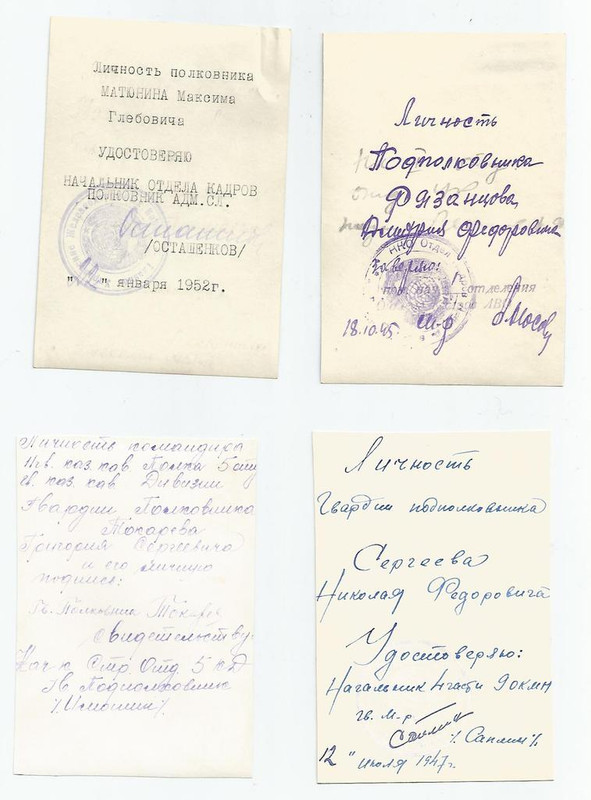 Личность полковника
МАТЮНИНА Максима
Глебовича
УДОСТОВЕРЯЮ
НАЧАЛЬНИК ОТДЕЛА КАДРОВ
ПОЛКОВНИК АДМ.СЛ.
/ОСТАШЕНКОВ/
" " января 1952г.
Личность
Подполковника
Фязанцова
Дмитрия Федоровича
НКО Отдел
Заверяю:
пом. нач. отделения
ЛВО
18.10.45 м-р
Личность командира
Гв. каз. кав. Полка 5
гв. каз. кав. Дивизии
Гвардии Полковника
Токарева
Григория Сергеевича
и его личную
подпись:
Гв. Полковник
свидетельствую
Нач-к Стр. Отд. 5
Гв. Подполковник
Личность
Гвардии подполковника
Сергеева
Николая Федоровича
Удостоверяю:
Начальник части
гв. м-р
/Саплин/
12 " июля 1947г.